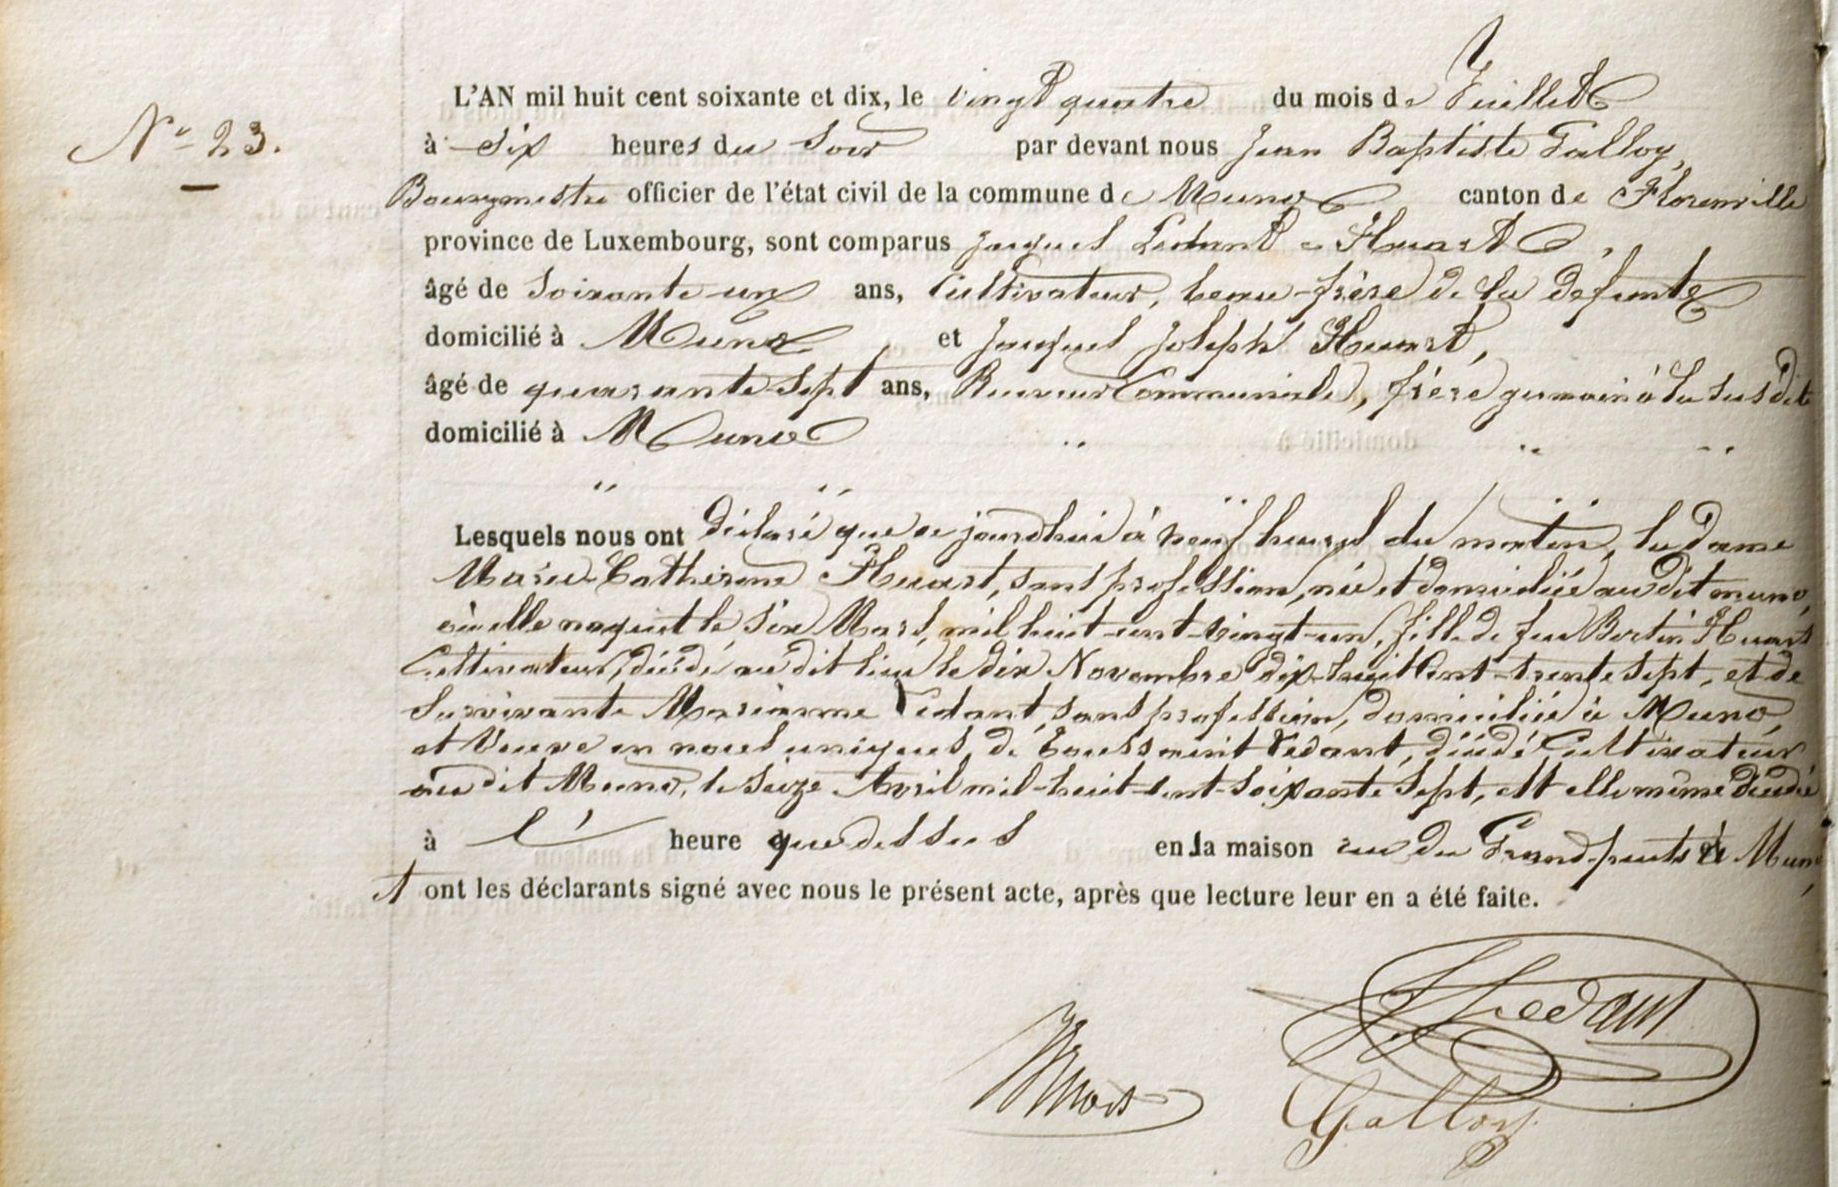 N° 23.
L'AN mil huit cent soixante et dix, le vingt quatre du mois de Juillet
à six heures du soir par devant nous Jean Baptiste Galloy,
Bourgmestre officier de l'état civil de la commune de Muno canton de Florenville
province de Luxembourg, sont comparus Jacques Ledant - Huart,
âgé de soixante-un ans, Cultivateur, beau-frère de la defunte
domicilié à Muno et Jacques Joseph Huart,
âgé de quarante sept ans, Receveur Communale, frère germain à la susdite
domicilié à Muno
Lesquels nous ont déclaré que ce jourdhui à neuf heures du matin, la dame
Marie-Catherine Huart, sans profession, née et domiciliée au dit muno,
où elle naquit le six Mars, mil huit-cent-vingt-un, fille de feu Bertin Huart
Cultivateur, décédé au dit lieu le dix Novembre dix-huit Cent-trente sept, et de
survivante Marianne Ledant, sans profession, domiciliée à Muno
et Veuve en noces uniques, de Toussaint Ledant, décédé Cultivateur
au dit Muno, le seize Avril mil-huit-cent-soixante sept, est elle même décédée
à l' heure que dessus en la maison rue du Grand-puits à Muno,
Et ont les déclarants signé avec nous le présent acte, après que lecture leur en a été faite.
Ledant
Galloy